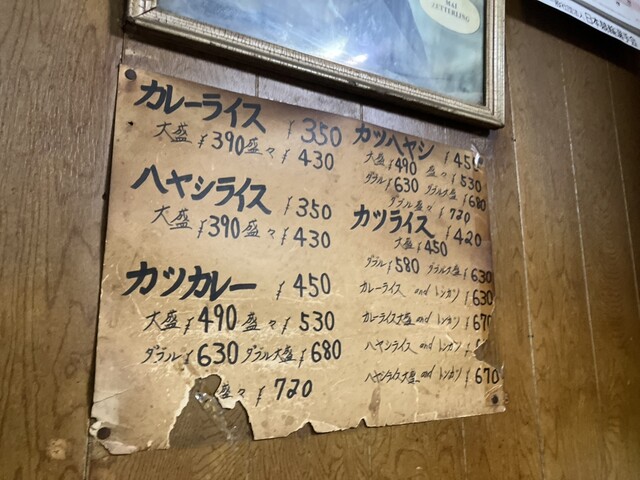 MAI
ZETTERLING
カレーライス ¥350
大盛¥390盛々¥430
ハヤシライス ¥350
大盛¥390盛々¥430
カツカレー ¥450
大盛¥490盛々¥530
ダブル¥630ダブル大盛¥680
盛々¥720
カツハヤシ ¥45
大盛¥490 盛々¥530
ダブル¥630 ダブル大盛¥680
ダブル盛々¥720
カツライス ¥420
大盛¥450
ダブル¥580 ダブル大盛¥630
カレーライス and トンカツ ¥630
カレーライス大盛 and トンカツ ¥670
ハヤシライス and トンカツ ¥
ハヤシライス大盛 and トンカツ ¥670